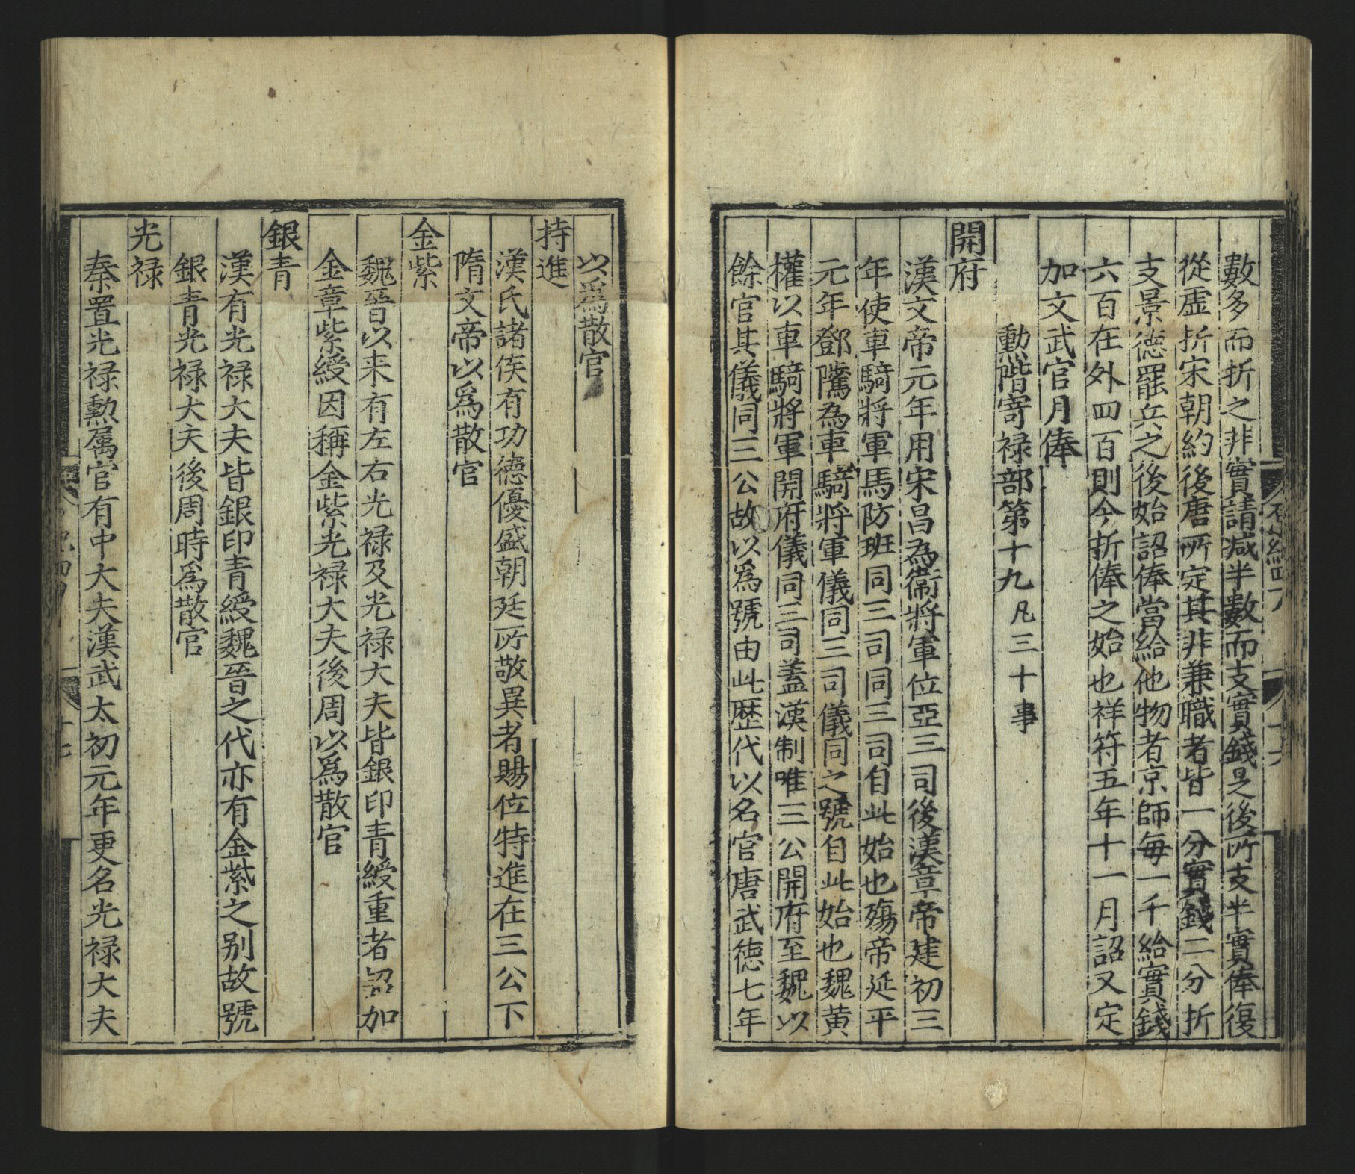 數多而折之非實請减半數而支實錢是後所支半實俸復
從虛折宋朝約後唐所定其非兼職者皆一分實錢二分折
支景德罷兵之後始詔俸當給他物者京師每一千給實錢
六百在外四百則今折俸之始也祥符五年十一月詔又定
加文武官月俸
勳階寄禄部第十九凡三十事
開府
漢文帝元年用宋昌為衞將軍位亞三司後漢章帝建初三
年使車騎將軍馬防班同三司同三司自此始也殤帝延平
元年鄧隲為車騎將軍儀同三司儀同之號自此始也魏黄
權以車騎將軍開府儀同三司盖漢制唯三公開府至魏以
餘官其儀同三公故以爲號由此歴代以名官唐武德七年
以爲散官
持進
漢氏諸侯有功德優盛朝廷所敬異者賜位特進在三公下
隋文帝以爲散官
金紫
魏晉以来有左右光禄及光禄大夫皆銀印青綬重者詔加
金章紫綬因稱金紫光禄大夫後周以爲散官
銀青
漢有光禄大夫皆銀印青綬魏晉之代亦有金紫之别故號
銀青光禄大夫後周時爲散官
光禄
秦置光禄勲属官有中大夫漢武太初元年更名光禄大夫